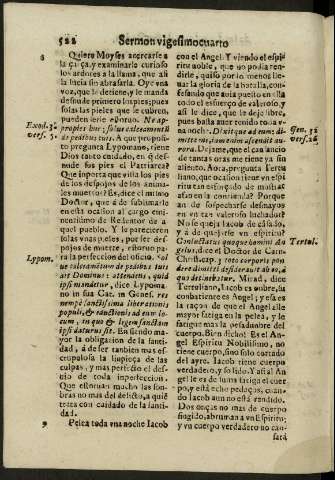 522 Sermon vigesimoquarto
8 Quiere Moyses acercarse a
la çarça, y examinarle curioso
los ardores a la llama, que assi
lucia sin abrasarla. Oye vna
voz, que le detiene, y le manda
desnude primero los pies; pues
solas las pieles que le cubren,
pueden ser le estoruo: Ne ap-
Exod. 3. propies huc; solue calceamentũ
vers. 5. de pedibus tuis. A que proposi-
to pregunta Lypomano, tiene
Dios tanto cuidado, en q̃ des-
nude sus pies el Patriarca?
Que importa que visita los pies
de los despojos de los anima-
les muertos? Es, dize el mismo
Doctor, que á de sublimarle
en esta ocasion al cargo emi-
nentissimo de Redentor de a-
quel pueblo. Y le parecieron
solas vnas pieles, por ser des-
pojos de muerte, estoruo pa-
Lypom. ra la perfeccion del oficio. Sol
ue calceamẽtum de pedibus tuis
ait Dominus: attendas, quid
ipsi mandatur, dize Lypoma-
no in sua Cat. in Genes. res
nempè sanctissima liberatione
populi, & sanctionis ad eum lo-
cum, in quo & legem sanctam
ipsi daturus sit. En siendo ma-
yor la obligacion de la santi-
dad, á de ser tambien mas es-
crupulosa la limpieça de las
culpas, y mas perfecto el des-
vio de toda imperfeccion.
Que estoruan mucho las som-
bras no mas del delicto, a quiẽ
trata con cuidado de la santi-
dad.
9 Pelea toda vna noche Iacob
con el Angel. Y viendo el espi-
ritu noble, que no podia ren-
dirle, quiso por lo menos lle-
uar la gloria de la batalla, con-
fessando que auia puesto en ella
todo el esfuerço de valeroso, y
assi le dize, que le deje libre,
pues basta auer luchado toda v-
na noche. Dixit que ad eum; di- Gen. 32
mitte me, iam enim ascendit au- vers. 26.
rora. Dejame, que el cansancio
de tantas oras me tiene ya sin
aliento. Aora, pregunta Tertu
liano, que ocasion tiene vn espi
ritu tan esforçado de mostrar
assi en la contienda? Porque
an de sospecharse desmayos
en vn tan valeroso luchador?
No se queja Iacob de cansado,
y á de quejarse vn espiritu?
Conluctatus quoque homini An Tertul.
gelus, dize el Doctor de Carn.
Christ. cap. 3. toto corporis pon
dere dimitti desiderauit ab eo, à
quo detinebatur. Mirad, dize
Tertuliano, Iacob es nobre, su
combatiente es Angel; y essa es
la raçon de que el Angel alle
mayor fatiga en la pelea, y le
fatigue mas la pesadumbre del
cuerpo. Bien dicho! Es el An-
gel Espiritu Nobilissimo, no
tiene cuerpo, sino solo cortado
del ayre. Iacob tiene cuerpo
verdadero, y solido. Y assi al An
gel le es de suma fatiga el cuer
po, y está echo pedaços, cuan-
do Iacob aun no está rendido.
Dos onças no mas de cuerpo
fingido, abruman a vn Espiritu;
y vn cuerpo verdadero no can-
sara